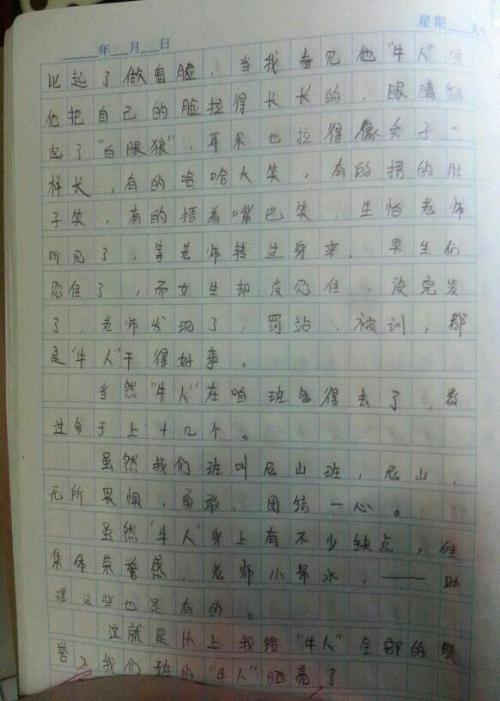 年 月 日 星期
比起了做鬼脸，当我看见他"牛人"时
他把自己的脸拉得长长的，眼睛
起了"白眼狼"，耳朵也拉得像兔子一
样长，有的哈哈大笑，有的捂的肚
子笑，有的捂着嘴巴笑，生怕老师
听见了，等老师转过身来，男生们
忍住了，而女生却没忍住，没完发
了 老师发现了，罚站，被训，都
是"牛人"干得好事。
当然"牛人"在咱班多得去了，数
过多于上十几个。
虽然我们班叫尼山班，尼山，
无所畏惧，勇敢，团结一心。
虽然"牛人"身上有不少缺点，但
集体荣誉感，老师小帮水，——助
理这些也是有的。
这就是以上我给"牛人"全部的赞
誉，我们班的"牛人"晒亮了